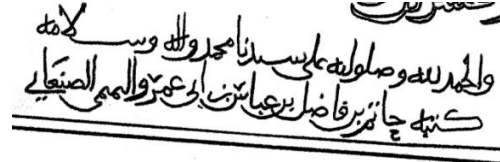 والحمد لله وصلوته على سيدنا محمد واله وسلامه
كتبه حاتم بن فاضل بن عباس بن ابى عمرو الصنعاني